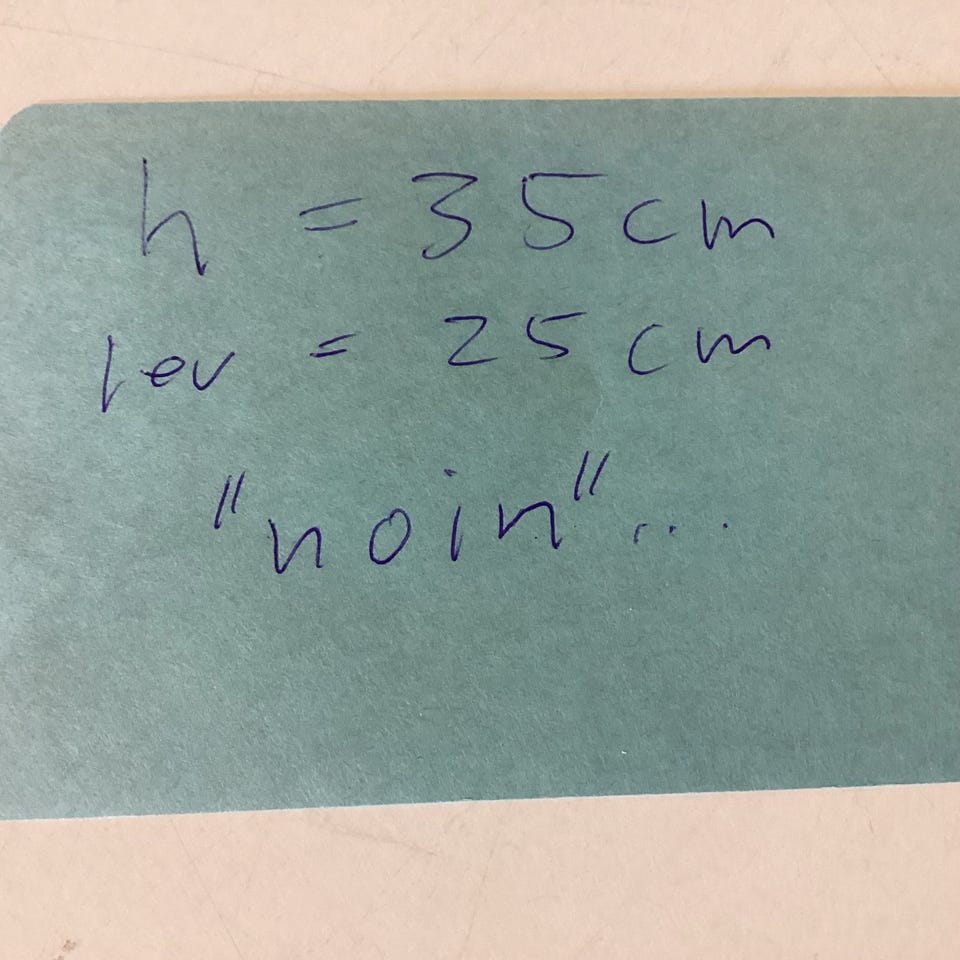 h = 35 cm
lev = 25 cm
"noin"...